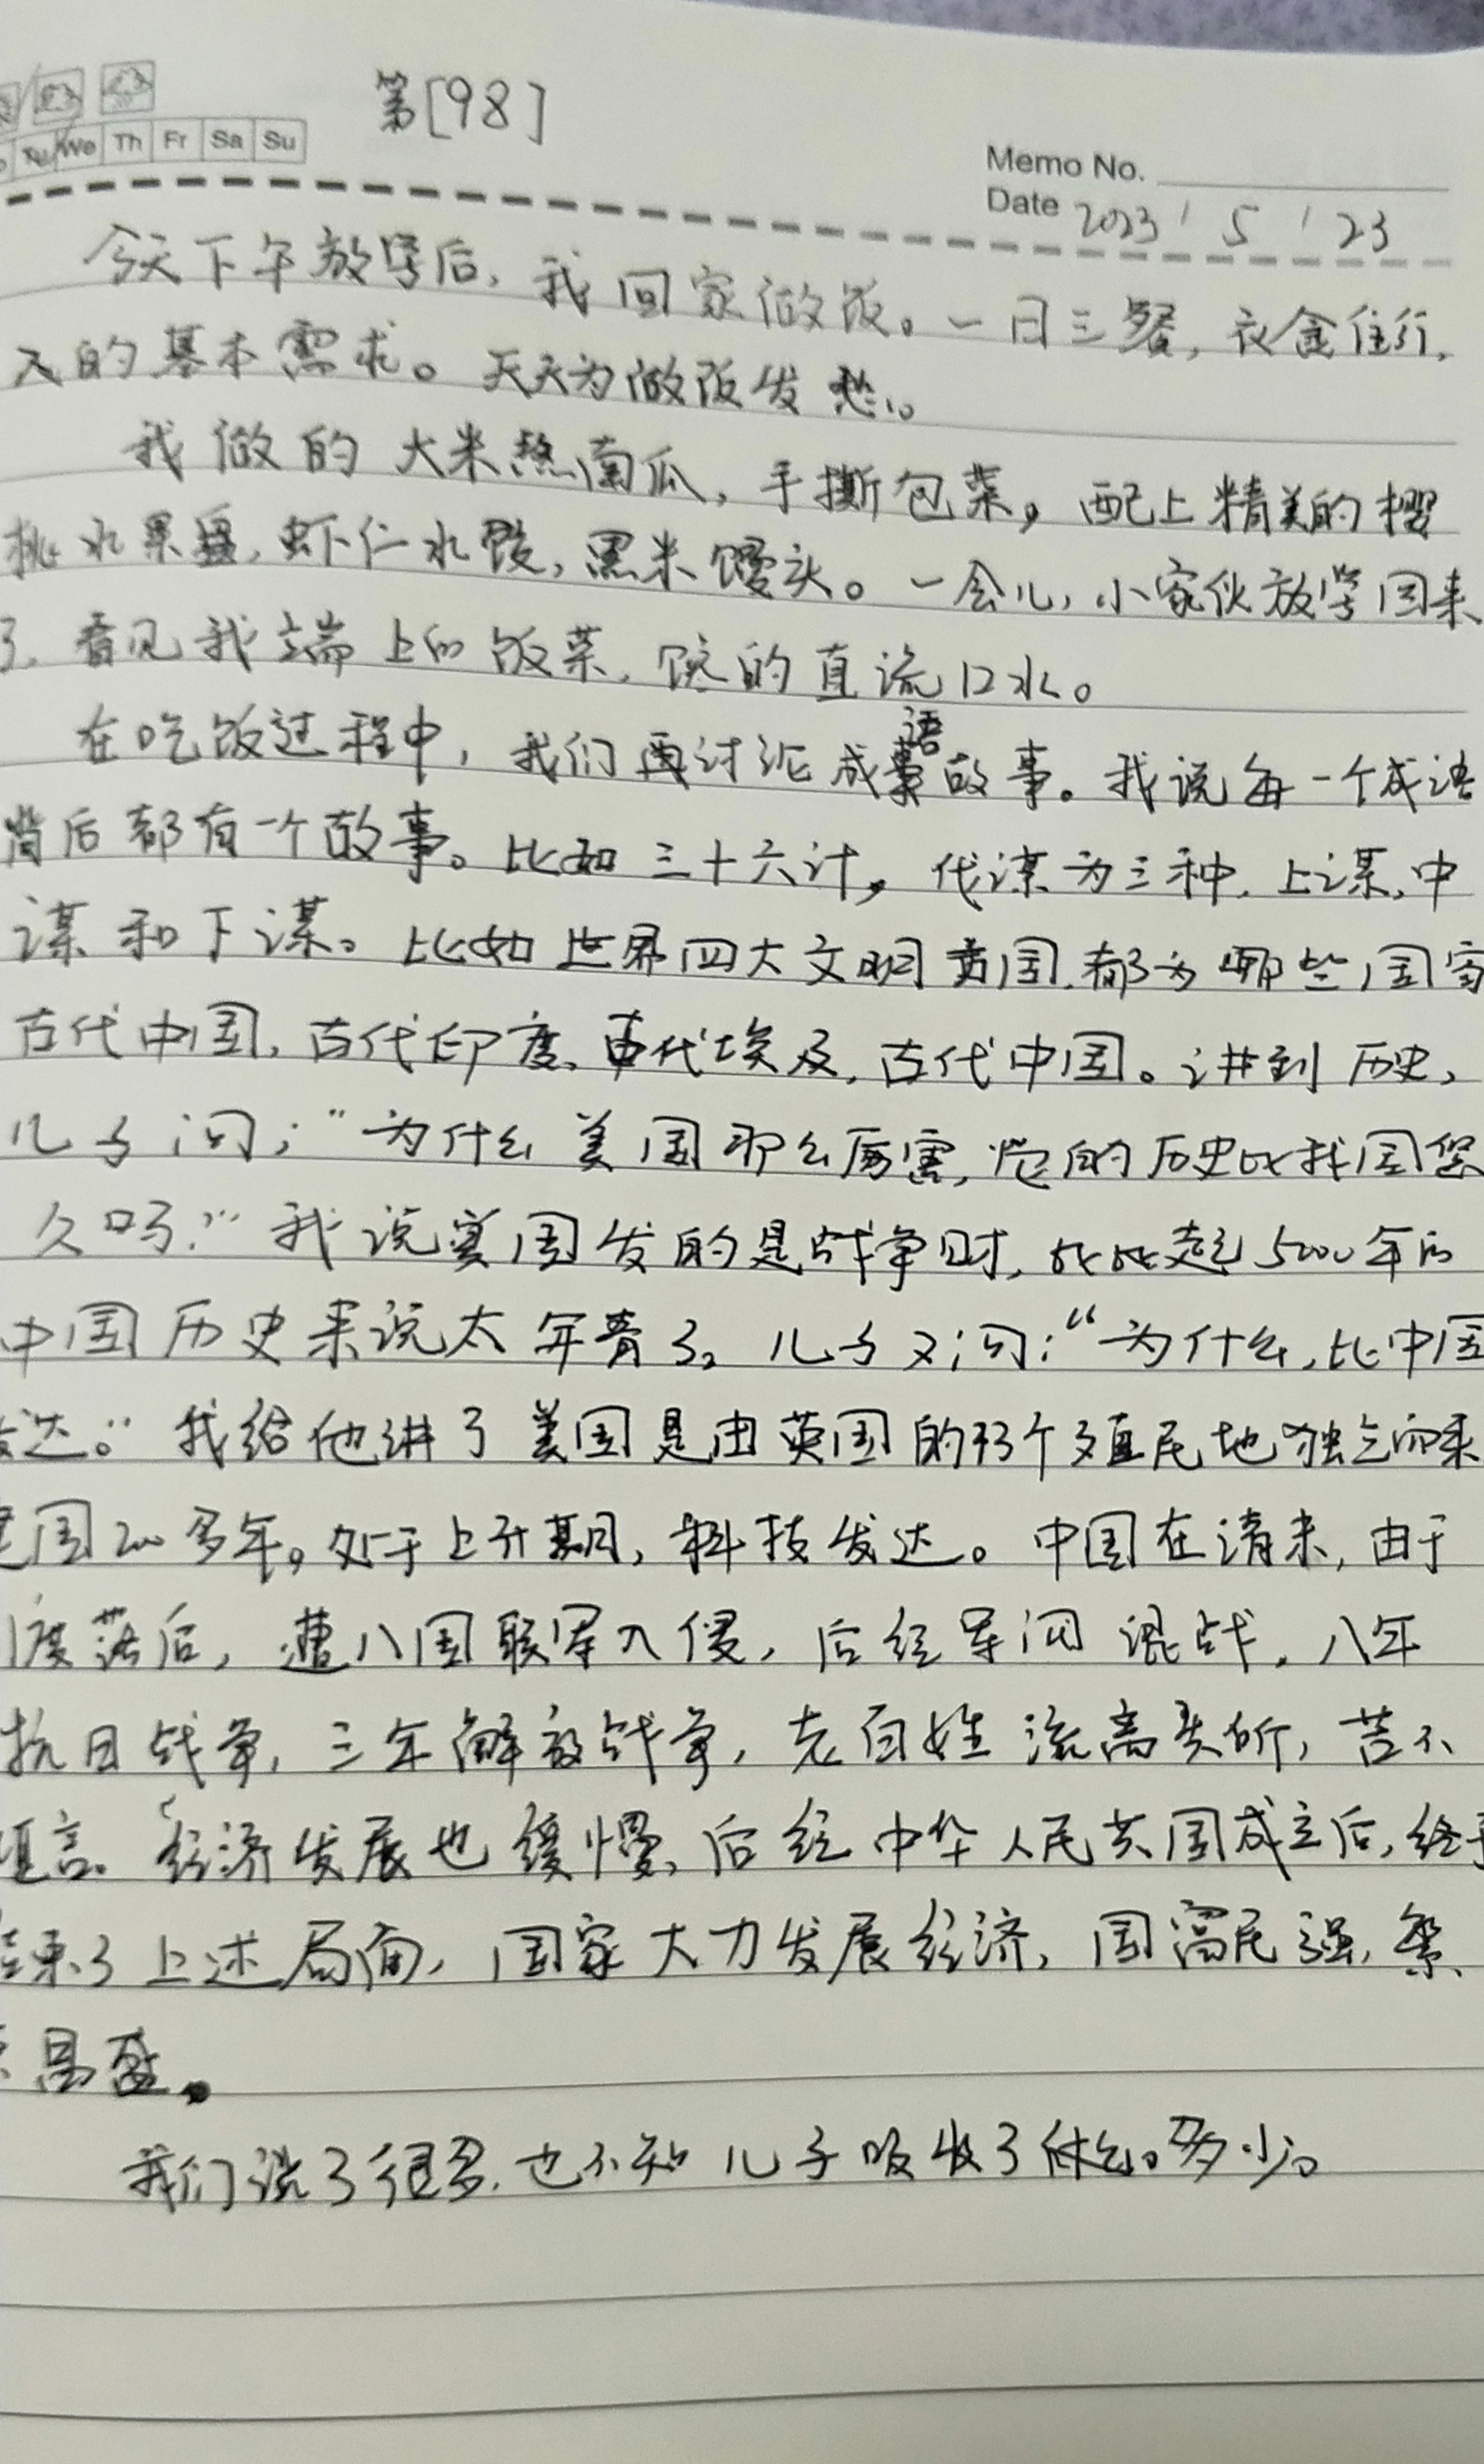 第[98]
Tu We Th Fr Sa Su
Memo No.
Date 2023 / 5 / 23
今天下午放学后，我回家做饭。一日三餐，衣食住行，
人的基本需求。天天为做饭发愁。
我做的大米熬南瓜，手撕包菜，配上精美的樱
桃水果盘，虾仁水饺，黑米馒头。一会儿，小家伙放学回来
了，看见我端上的饭菜，馋的直流口水。
在吃饭过程中，我们再讨论成语故事。我说每一个成语
背后都有一个故事。比如三十六计，代谋为三种，上谋，中
谋和下谋。比如世界四大文明古国，都为哪些国家
古代中国，古代印度，古代埃及，古代中国。讲到历史，
儿子问：“为什么美国那么厉害，他的历史比我国悠
久吗？”我说美国发的是战争财，比比起5000年的
中国历史来说太年青了。儿子又问：“为什么，比中国
发达。”我给他讲了美国是由英国的13个殖民地独立而来
建国200多年。处于上升期，科技发达。中国在清末，由于
制度落后，遭八国联军入侵，后经军阀混战，八年
抗日战争，三年解放战争，老百姓流离失所，苦不
堪言。经济发展也缓慢，后经中华人民共国成立后，终于
结束了上述局面，国家大力发展经济，国富民强，繁
荣昌盛。
我们说了很多，也不知儿子吸收了多少。